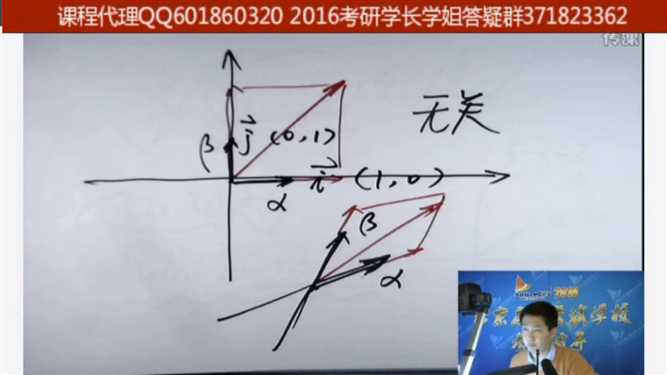 课程代理QQ601860320 2016考研学长学姐答疑群371823362
传课
无关
β j (0,1)
α i (1,0)
β
α